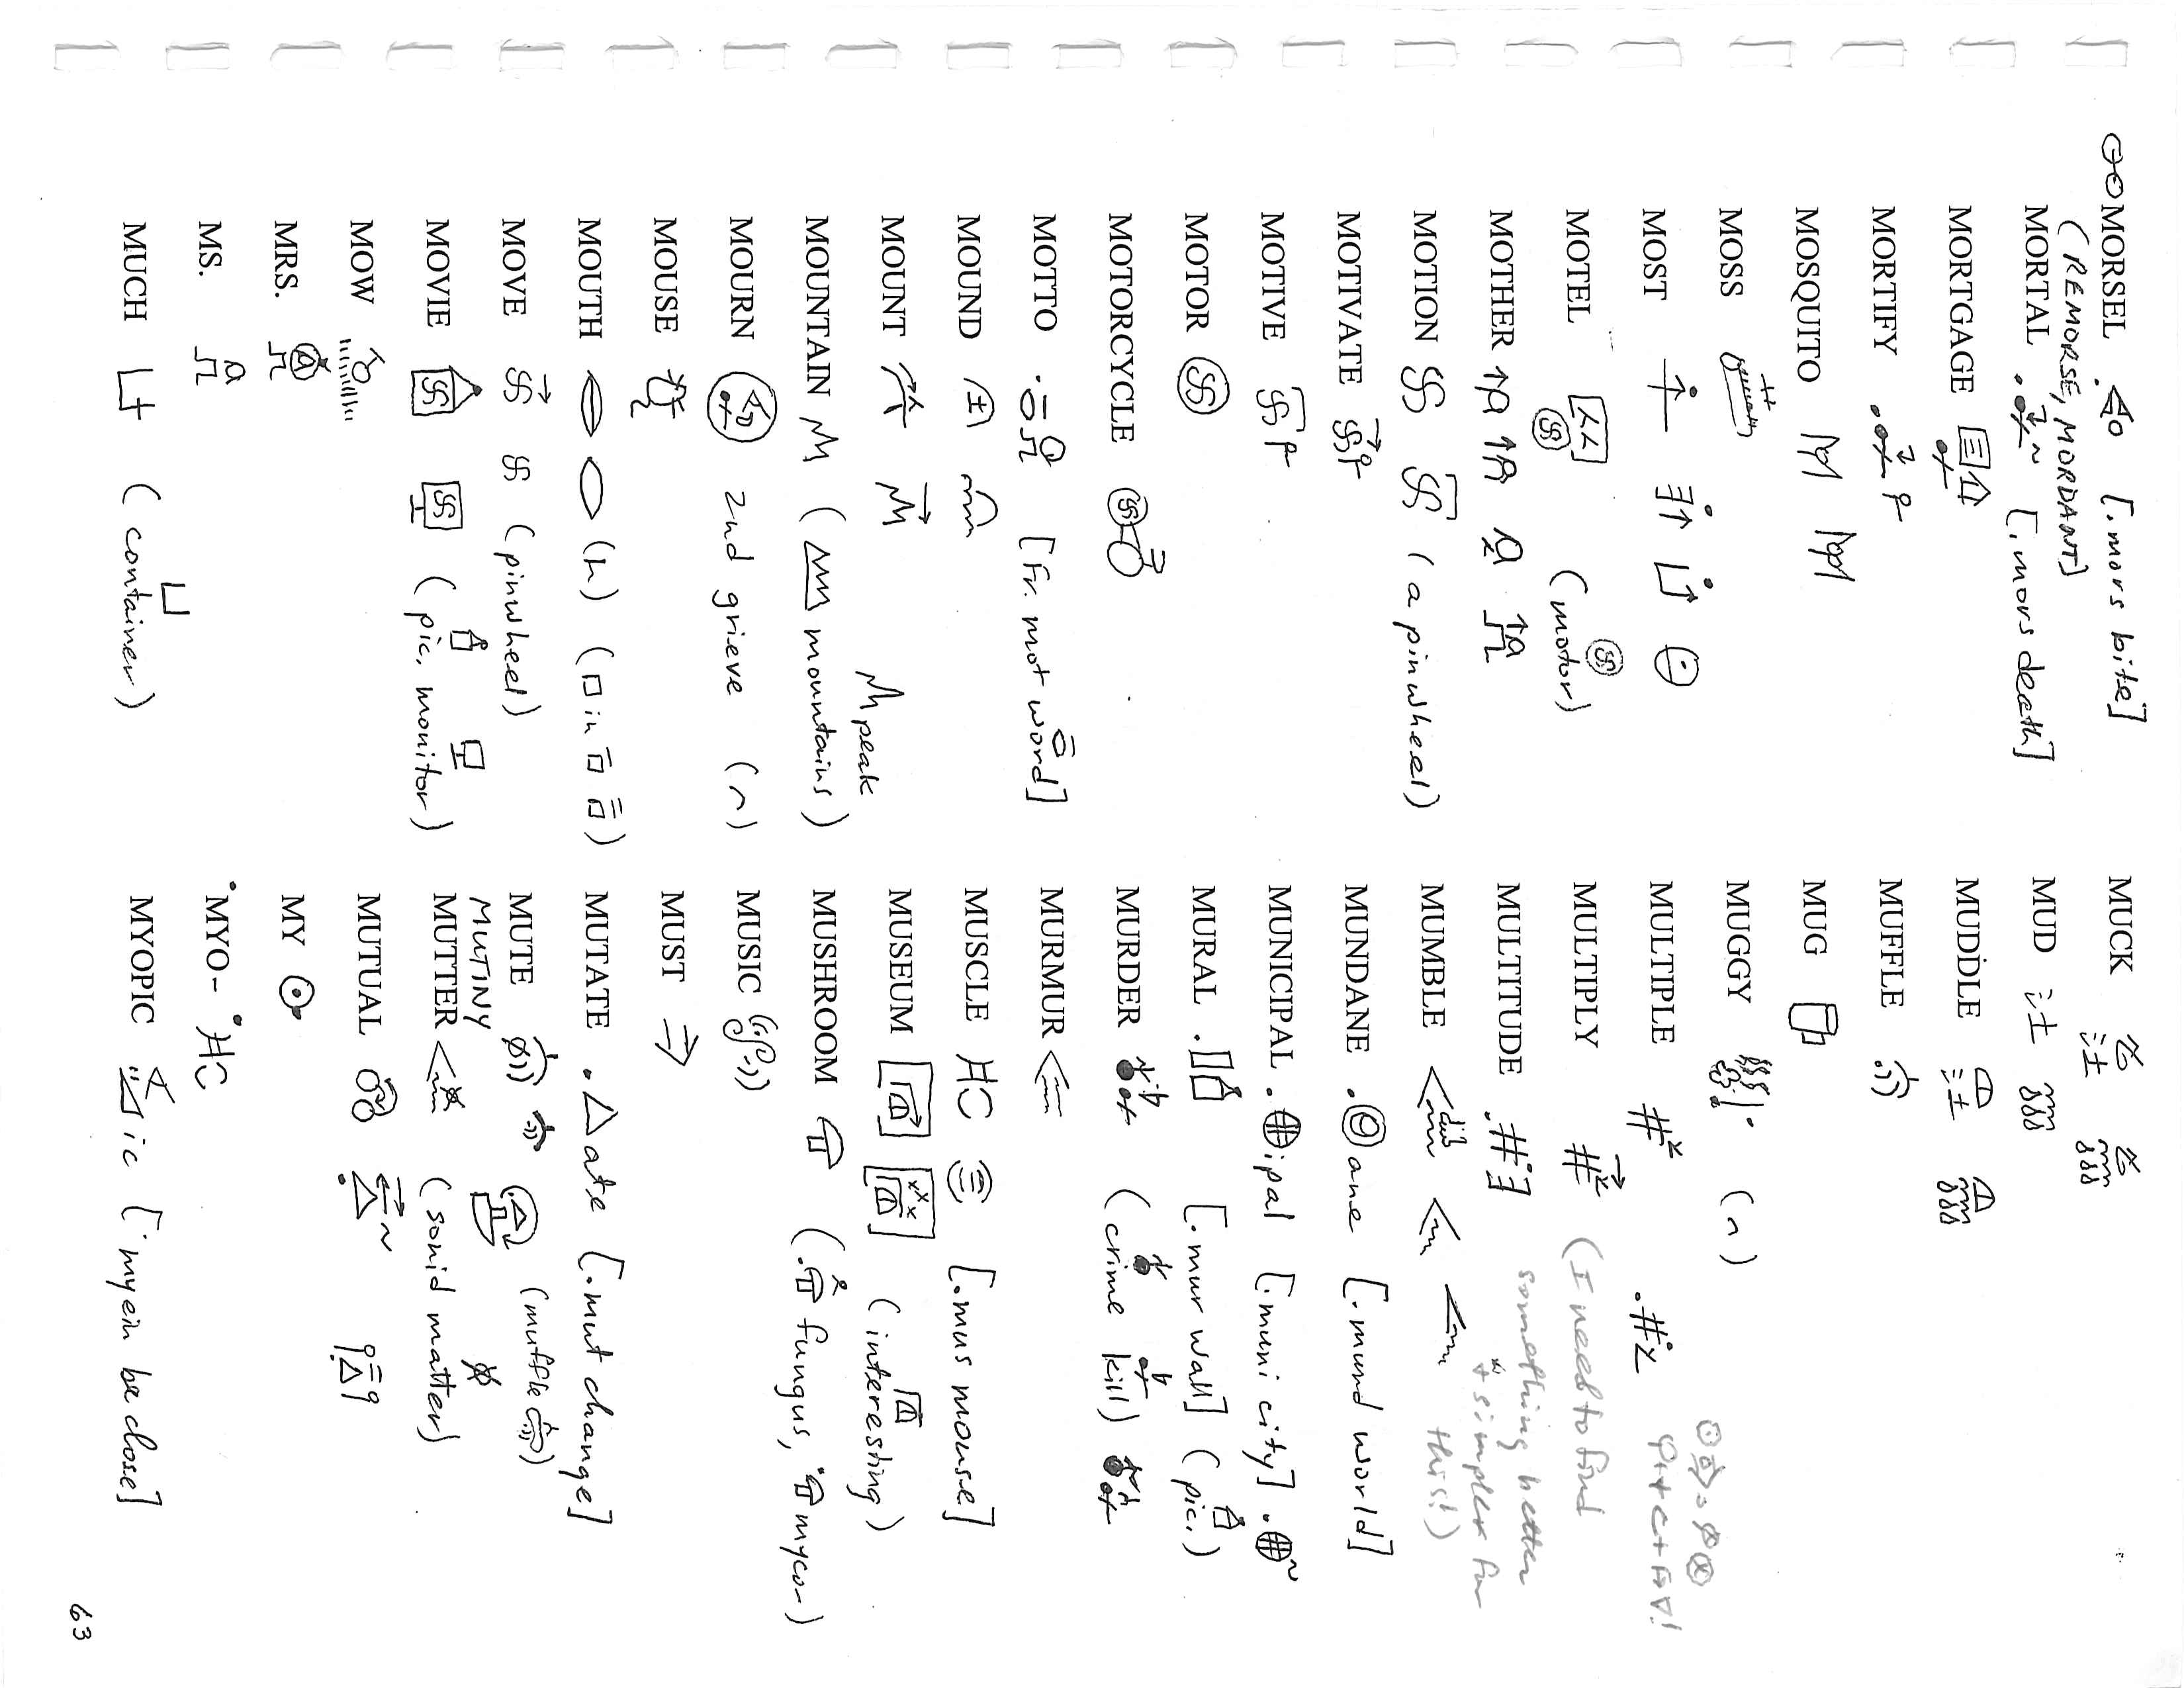 MORSEL [.mors bite]
(REMORSE, MORDANT)
MORTAL [.mors death]
MORTGAGE
MORTIFY
MOSQUITO
MOSS
MOST
MOTEL (motor)
MOTHER
MOTION (a pinwheel)
MOTIVATE
MOTIVE
MOTOR
MOTORCYCLE
MOTTO [Fr. mot word]
MOUND
MOUNT
peak
MOUNTAIN (mountains)
MOURN 2nd grieve (n)
MOUSE
MOUTH (h) (in)
MOVE (pinwheel)
MOVIE (pic, monitor)
MOW
MRS.
MS.
MUCH (container)
MUCK
MUD
MUDDLE
MUFFLE
MUG
MUGGY (n)
MULTIPLE
MULTIPLY (I need to find
something better
MULTITUDE
+ simpler for
this!)
MUMBLE
MUNDANE .ane [.mund world]
MUNICIPAL .ipal [.muni city]
MURAL [.mur wall] (pic.)
MURDER (crime kill)
MURMUR
MUSCLE [.mus mouse]
MUSEUM (interesting)
MUSHROOM (fungus, mycor)
MUSIC
MUST
MUTATE .ate [.mut change]
MUTE (muffle)
MUTINY
MUTTER (sonid matter)
MUTUAL
MY
·MYO-
MYOPIC ic [·myein be close]
63